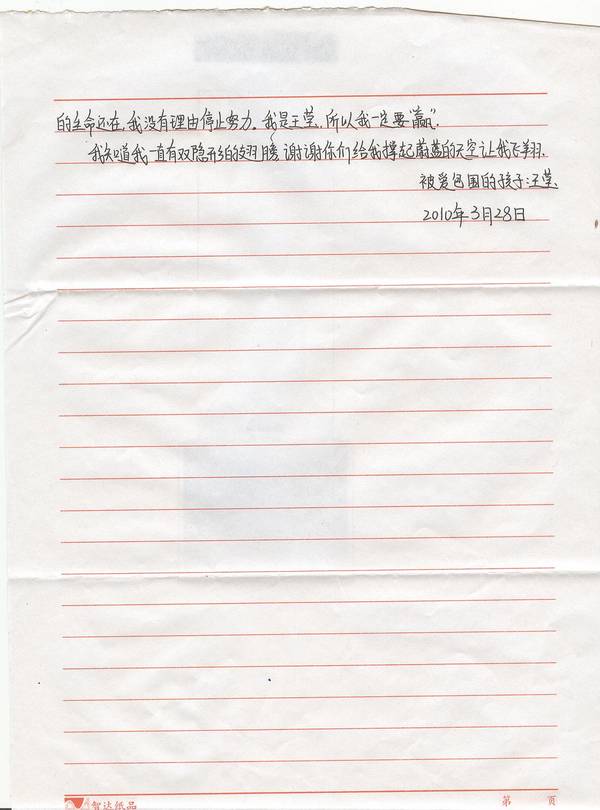 的生命还在,我没有理由停止努力。我是王莹,所以我一定要“赢”.
我知道我一直有双隐形的翅膀,谢谢你们给我撑起蔚蓝的天空让我飞翔.
被爱包围的孩子:王莹.
2010年3月28日
智达纸品
第 页